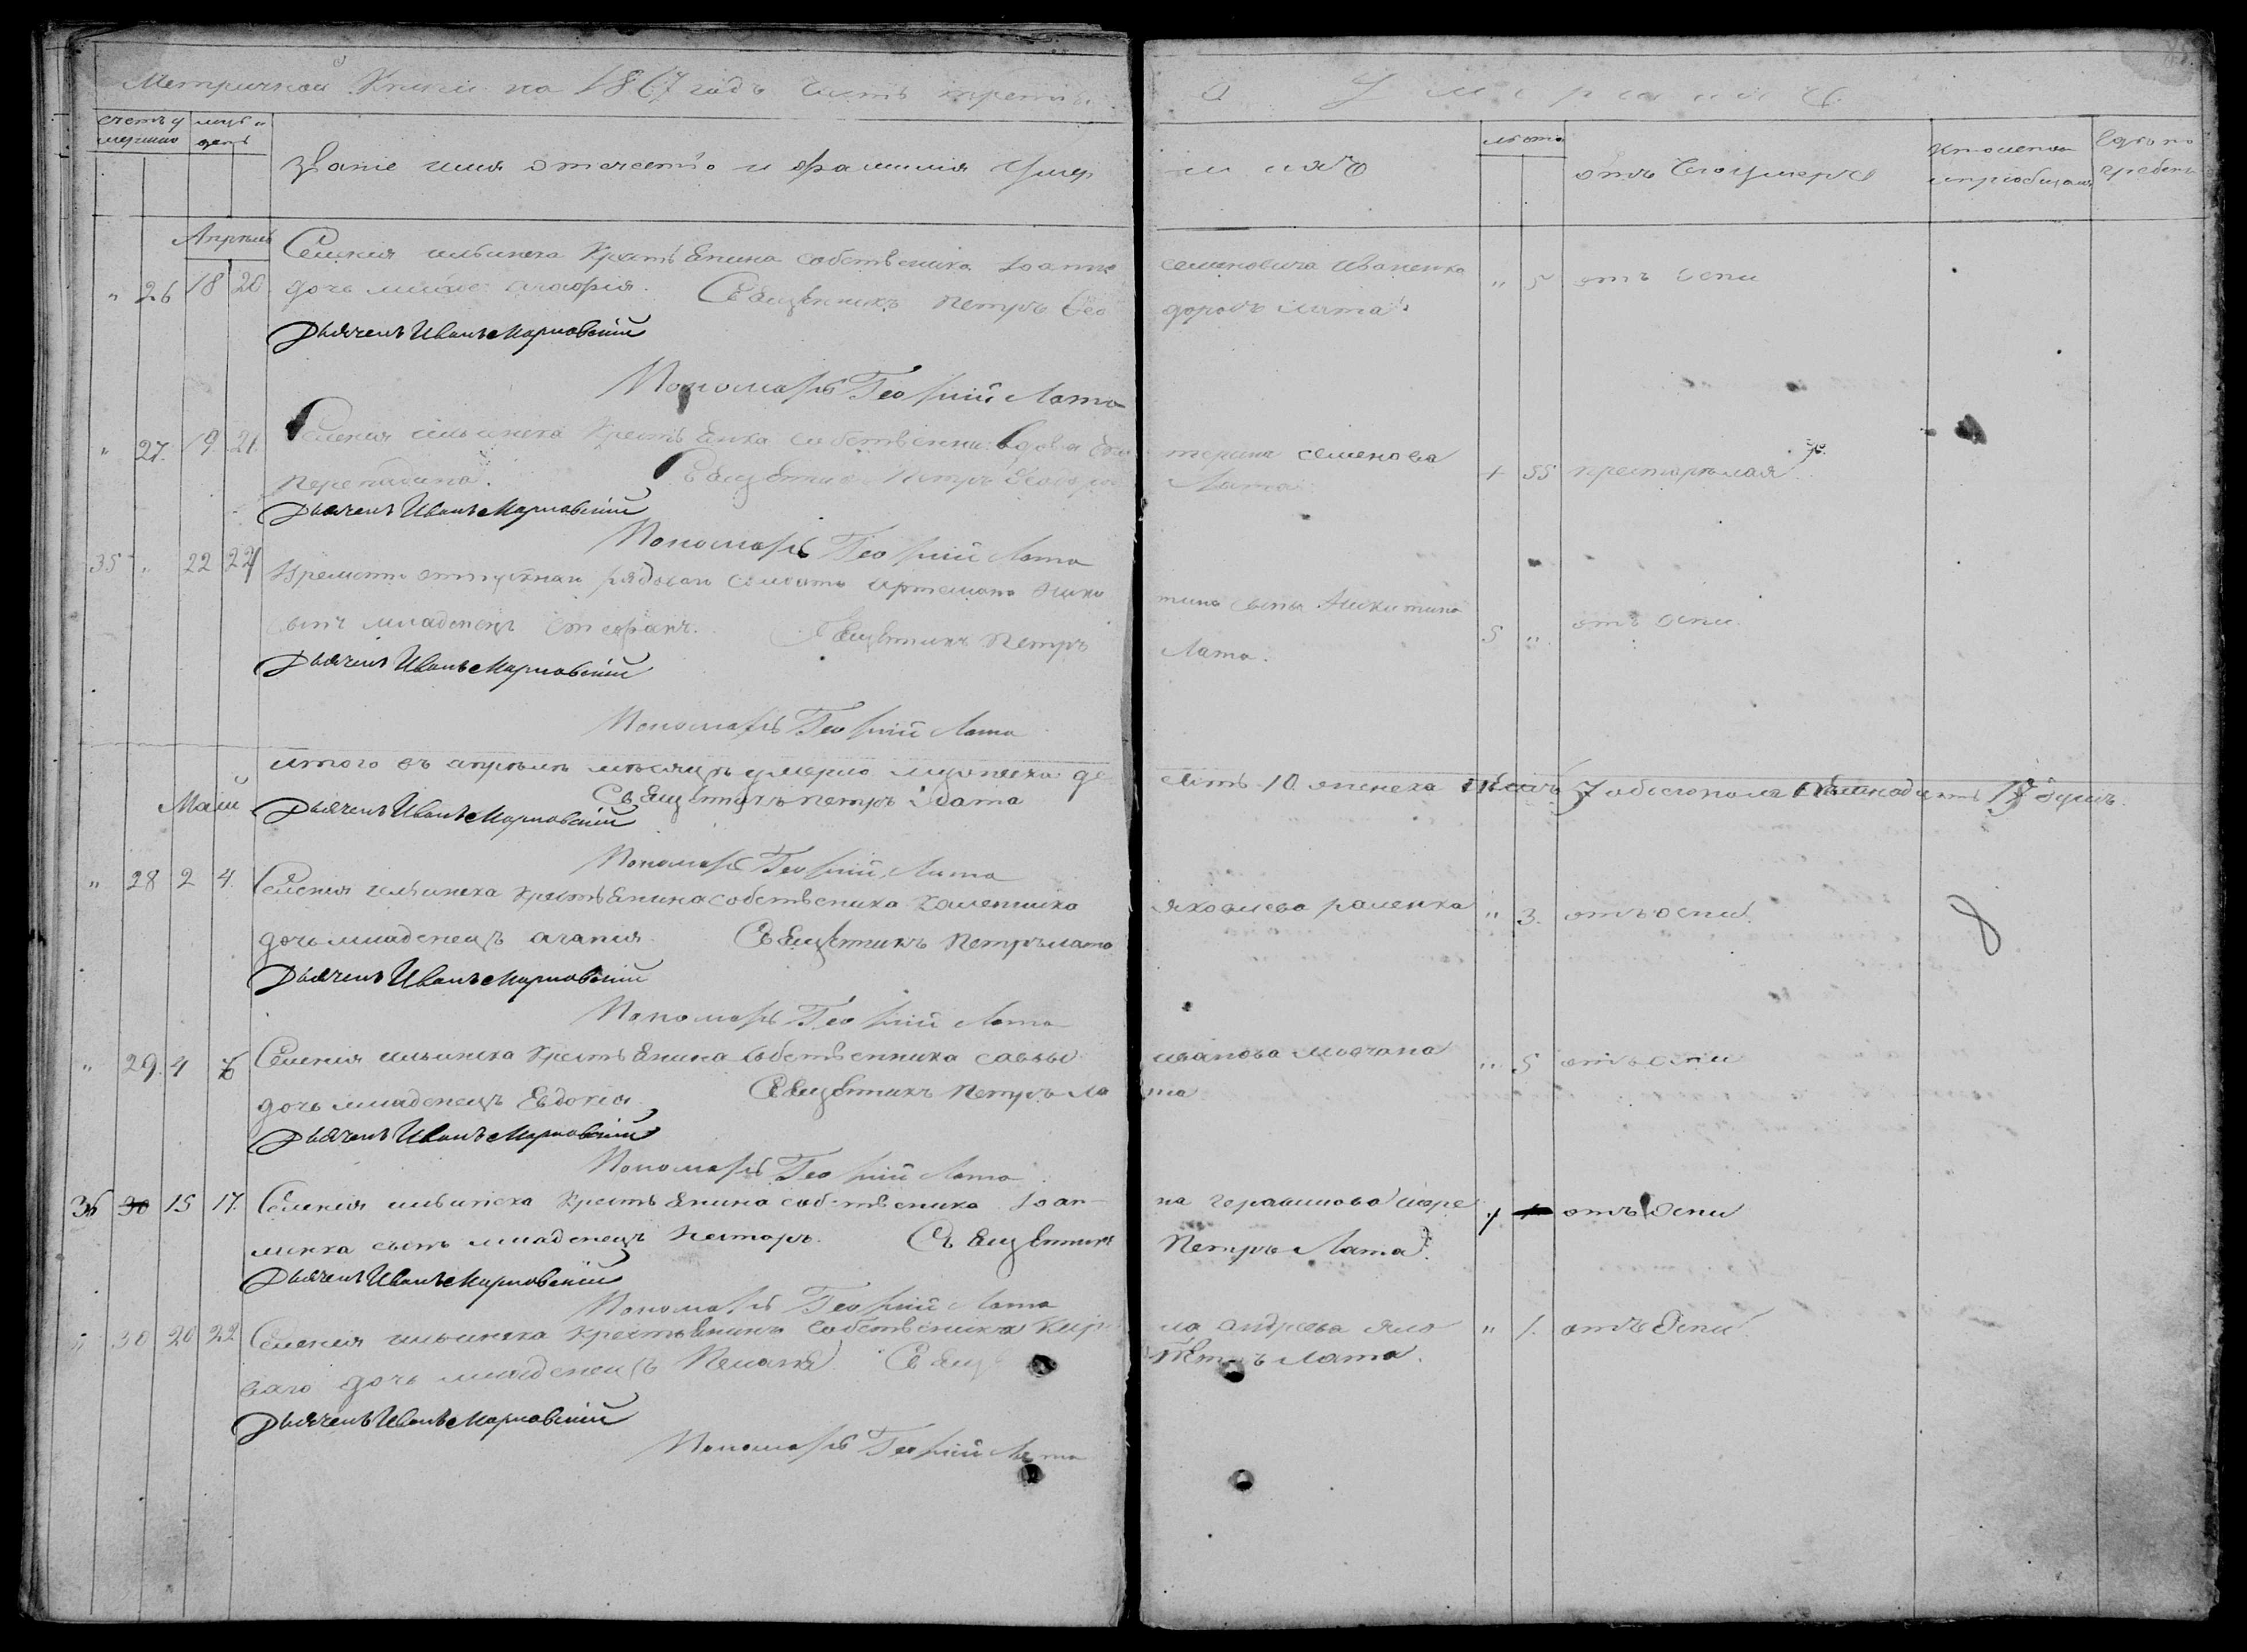 Метричной Книги на 1867 годъ Часть третья. О Умершихъ
счетъ умершихъ
мѣс. и день
Званіе имя отчество и фамилія Умершаго
лѣта
отъ Чего умеръ
Кто исповѣд. и пріобщалъ
Гдѣ погребенъ
Апрѣль
" 26 18 20 Селенія ильинска Крестьянина собственика Іоанна семеновича иваненка " 5 отъ оспи
дочь младе: агафія. Священникъ Петръ Ѳеодоровъ Лата
Дьячекъ Иванъ Марновскій
Пономарь Георгій Лата
" 27. 19. 21. Селенія ильинска Крестьянка собственни: вдова Екатерина семенова + 55 престарѣлая
Священникъ Петръ Ѳеодоров Лата
Дьячекъ Иванъ Марновскій
Пономарь Георгій Лата
35 " 22 24 Времено отпускнаго рядоваго солдата артемона Никитина 5 " отъ оспи.
сынъ младенецъ стефанъ. Священникъ Петръ Лата.
Дьячекъ Иванъ Марновскій
Пономарь Георгій Лата
итого въ апрѣлѣ мѣсяцѣ умерло мужеска десять 10. женска 7 обоего пола 17 душъ.
Священникъ Петръ Лата
Маій
Дьячекъ Иванъ Марновскій
Пономарь Георгій Лата
" 28 2 4. Селенія ильинска Крестьянина собственика яковлева " 3. отъ оспи.
дочь младенецъ агапія. Священникъ Петръ Лата
Дьячекъ Иванъ Марновскій
Пономарь Георгій Лата
" 29. 4 6 Селенія ильинска Крестьянина собственника саввы иванова мовчана " 5 отъ оспи
дочь младенецъ Евдокія. Священникъ Петръ Лата
Дьячекъ Иванъ Марновскій
Пономарь Георгій Лата
36 30 15 17. Селенія ильинска Крестьянина собственика Іоанна герасимова 1 отъ оспи
сынъ младенецъ Несторъ. Священникъ Петръ Лата.
Дьячекъ Иванъ Марновскій
Пономарь Георгій Лата
" 30 20 22 Селенія ильинска крестьянина собственика Кирила андреева " 1. отъ Оспи.
ваго дочь младенецъ Священ Петръ Лата.
Дьячекъ Иванъ Марновскій
Пономарь Георгій Лата